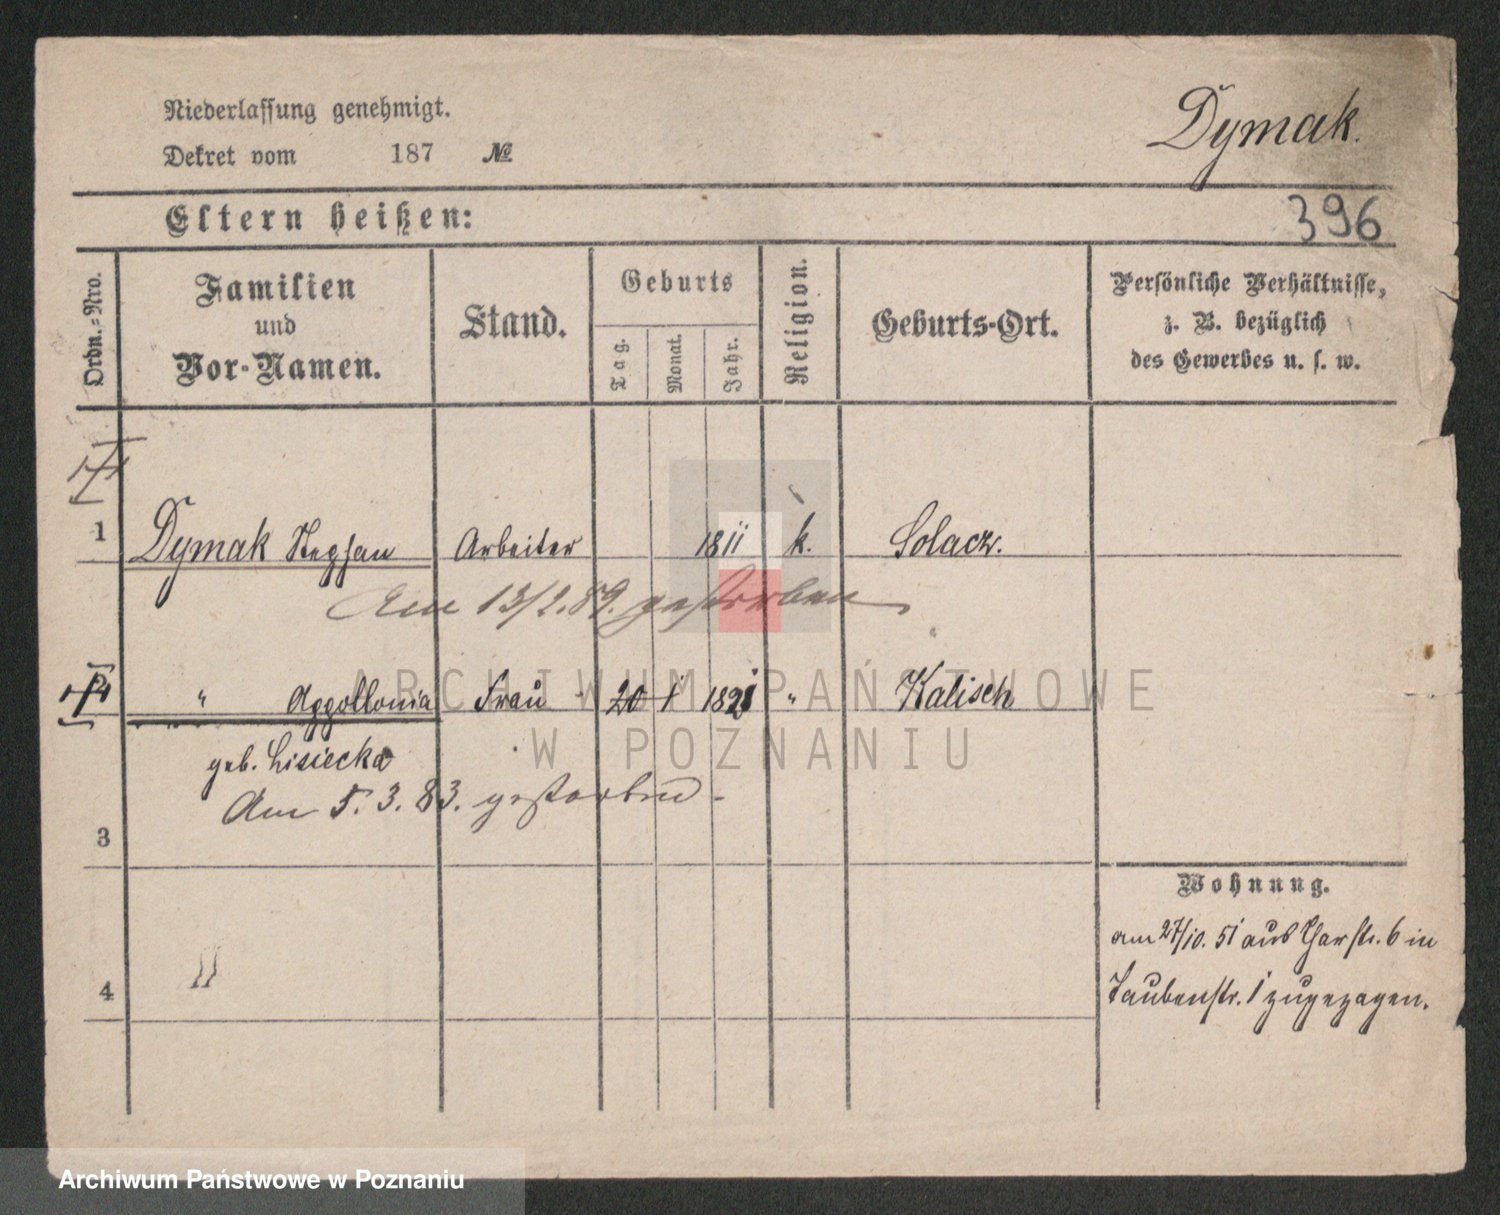 Niederlassung genehmigt.
Dekret vom 187 №
Dymak.
Eltern heißen:
396
Ordn.-Nro.
Familien
und
Vor-Namen.
Stand.
Geburts
Tag.
Monat.
Jahr.
Religion.
Geburts-Ort.
Persönliche Verhältnisse,
z. B. bezüglich
des Gewerbes u. s. w.
1 Dymak Stephan Arbeiter 1811 k. Solacz.
Am 13/2.89. gestorben
2 " Appollonia Frau 20 1 1821 " Kalisch
geb. Lisiecka
Am 5. 3. 83. gestorben -
3
Wohnung.
am 27/10. 51 aus 6 in
4
Taubenstr. 1 zugezogen.
ARCHIWUM PAŃSTWOWE
W POZNANIU
Archiwum Państwowe w Poznaniu